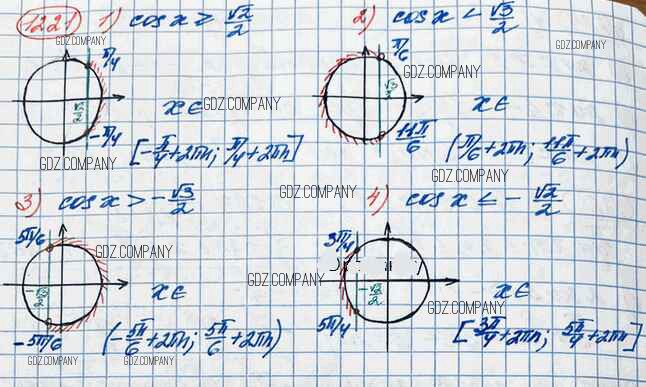 1221 1) cos x ≥ √2/2
GDZ.COMPANY
π/4
√2/2
-π/4
x ∈
GDZ.COMPANY
[-π/4+2πn; π/4+2πn]
GDZ.COMPANY
2) cos x < √3/2
GDZ.COMPANY
π/6
GDZ.COMPANY
√3/2
11π/6
x ∈
GDZ.COMPANY
(π/6+2πn; 11π/6+2πn)
GDZ.COMPANY
3) cos x > -√3/2
GDZ.COMPANY
5π/6
GDZ.COMPANY
-√3/2
-5π/6
x ∈
(-5π/6+2πn; 5π/6+2πn)
GDZ.COMPANY
GDZ.COMPANY
4) cos x ≤ -√2/2
3π/4
GDZ.COMPANY
-√2/2
5π/4
x ∈
GDZ.COMPANY
[3π/4+2πn; 5π/4+2πn]
GDZ.COMPANY